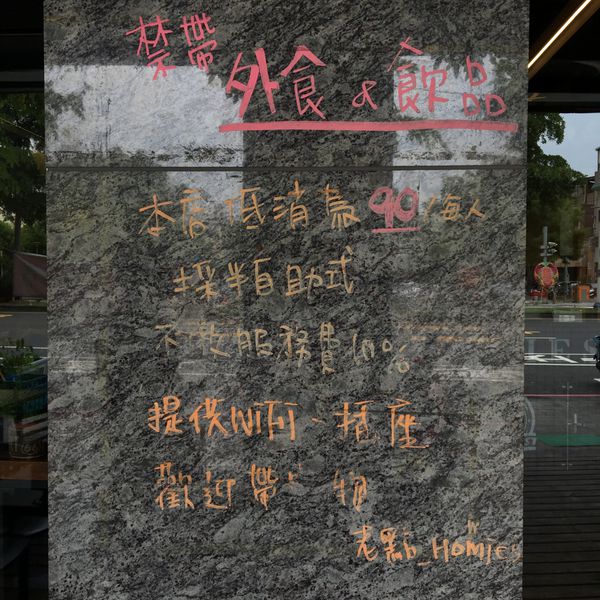 禁帶
外食 & 飲品
本店低消為 90/每人
採半自助式
不收服務費10%
提供WiFi、插座
歡迎帶 物
老點_Homies